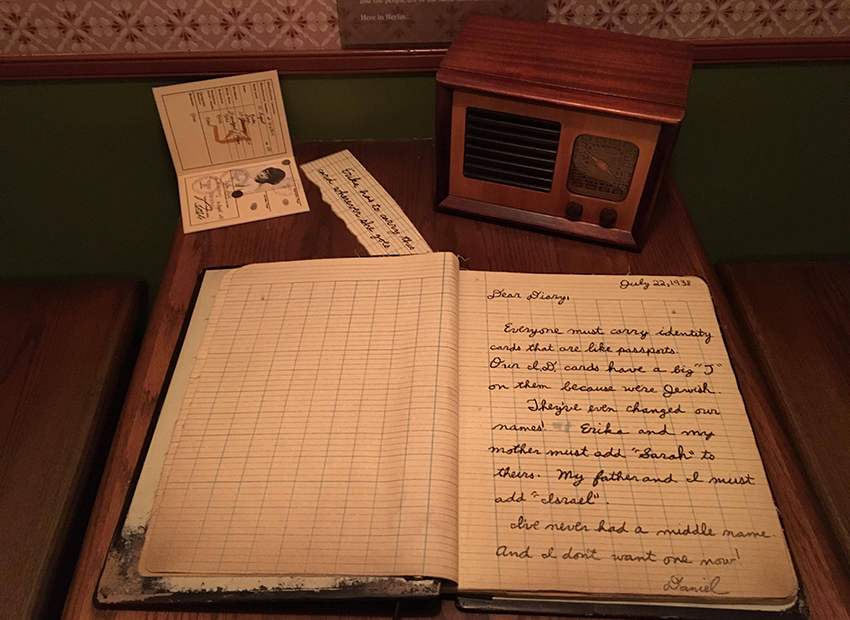 Here in Berlin...
Erika has to carry this
card wherever she goes
July 22, 1938
Dear Diary,
Everyone must carry identity
cards that are like passports.
Our I.D. cards have a big "J"
on them because were Jewish.
They've even changed our
names! Erika and my
mother must add "Sarah" to
theirs. My father and I must
add "Israel".
I've never had a middle name.
And I don't want one now!
Daniel